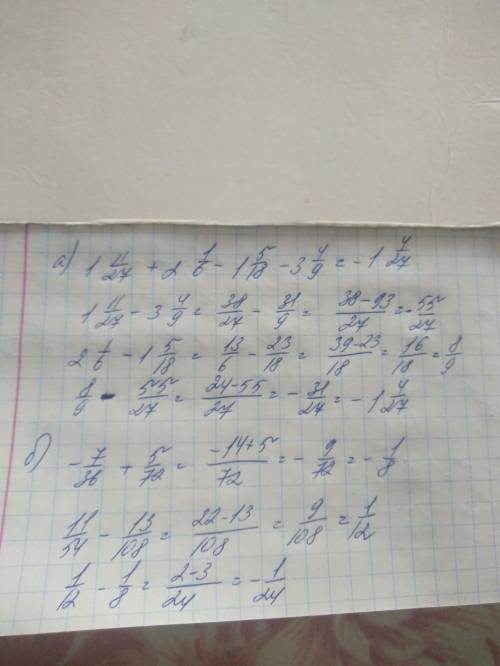 а) 1 11/27 + 2 1/6 - 1 5/18 - 3 4/9 = - 1 4/27
1 11/27 - 3 4/9 = 38/27 - 31/9 = 38-93/27 = - 55/27
2 1/6 - 1 5/18 = 13/6 - 23/18 = 39-23/18 = 16/18 = 8/9
8/9 - 55/27 = 24-55/27 = - 31/27 = - 1 4/27
б) - 7/36 + 5/72 = -14+5/72 = - 9/72 = - 1/8
11/54 - 13/108 = 22-13/108 = 9/108 = 1/12
1/12 - 1/8 = 2-3/24 = - 1/24